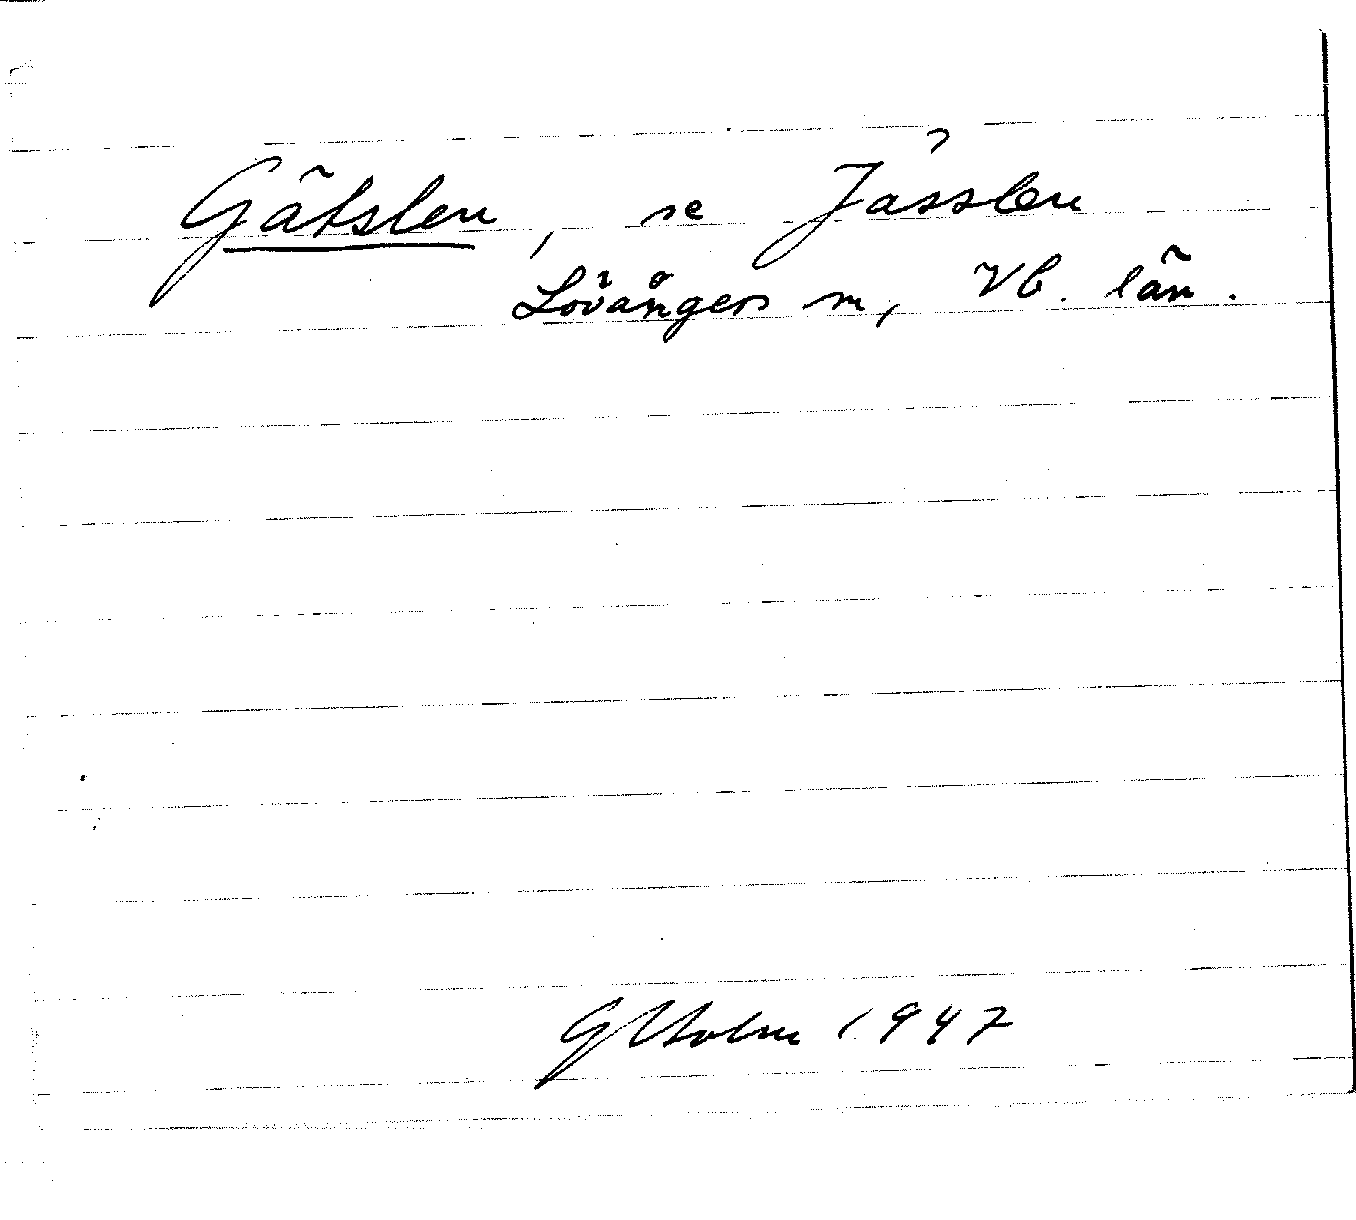 Gätslen, se Jässlen
Lövångers sn, Vb. län.
G Holm 1947